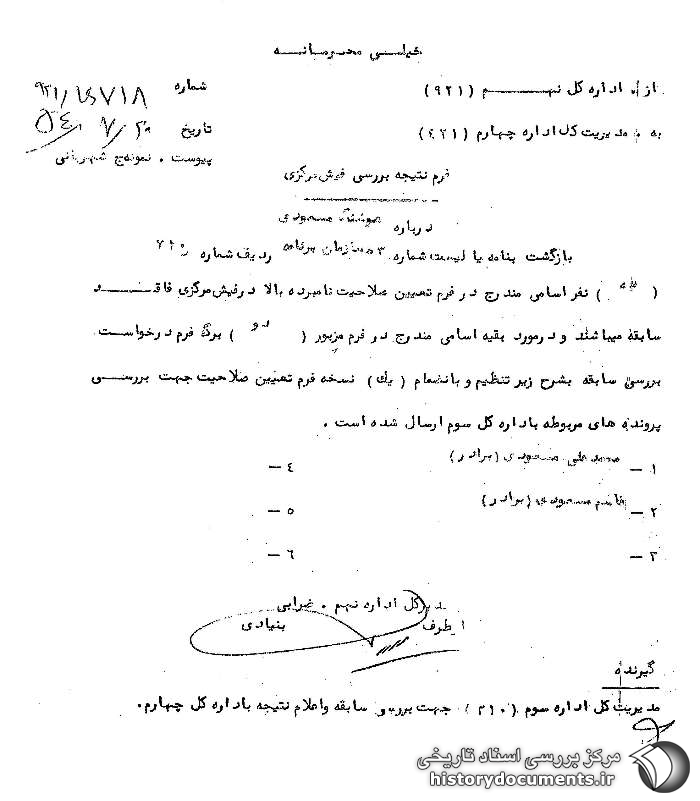 خیلی محرمانه
از : اداره کل نهم (۹۲۱)
شماره ۹۲۱/۱۵۷۱۸
به : مدیریت کل اداره چهارم (٤۲۱)
تاریخ ۵٤/۷/۲۰
پیوست . نمونج شهربانی
فرم نتیجه بررسی فیش مرکزی
درباره هوشنگ مسعودی
بازگشت بنامه یا لیست شماره ۳ سازمان برنامه ردیف شماره
( ) نفر اسامی مندرج در فرم تعیین صلاحیت نامبرده بالا در فیش مرکزی فاقد
سابقه میباشند و در مورد بقیه اسامی مندرج در فرم مزبور ( دو ) برگ فرم درخواست
بررسی سابقه بشرح زیر تنظیم و بانضمام (یك) نسخه فرم تعیین صلاحیت جهت بررسی
پرونده های مربوطه باداره کل سوم ارسال شده است .
۱ — محمد علی مسعودی (برادر)
٤ —
۲ — قاسم مسعودی (برادر)
۵ —
۳ —
٦ —
مدیر کل اداره نهم . ضرابی
از طرف بنیادی
گیرنده
مدیریت کل اداره سوم (۳۱۰) جهت بررسی سابقه و اعلام نتیجه باداره کل چهارم.
مرکز بررسی اسناد تاریخی
historydocuments.ir